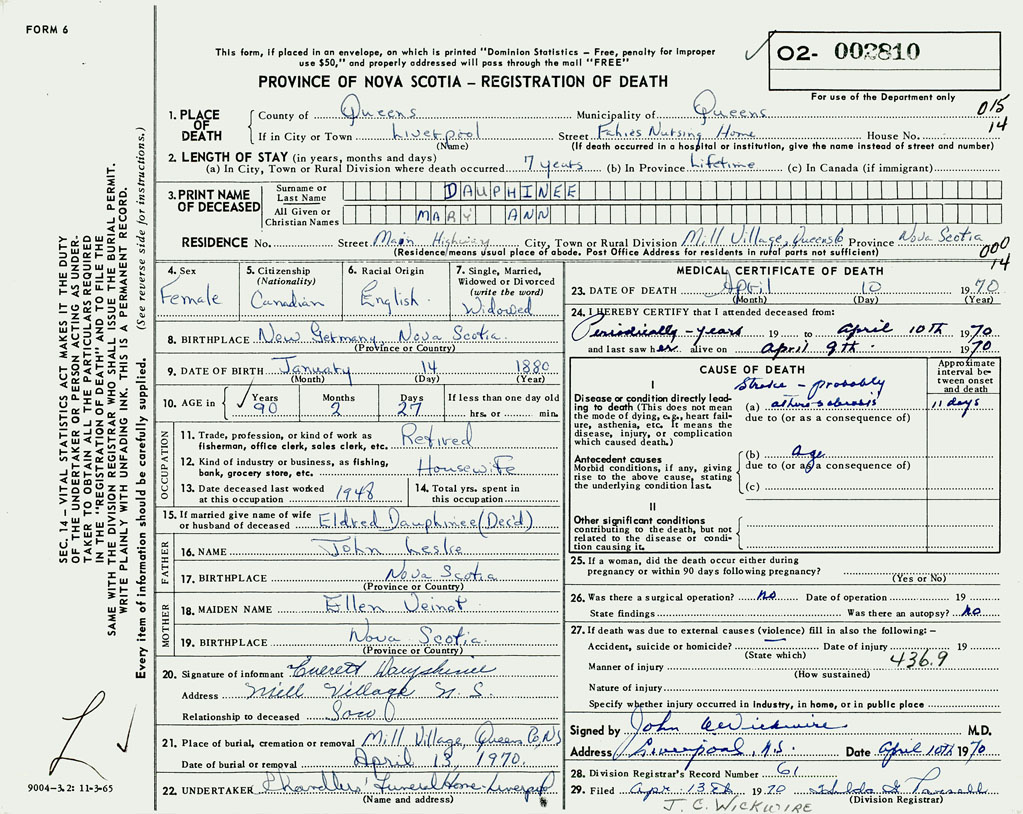 FORM 6
This form, if placed in an envelope, on which is printed "Dominion Statistics – Free, penalty for improper
use $50," and properly addressed will pass through the mail "FREE"
PROVINCE OF NOVA SCOTIA – REGISTRATION OF DEATH
O2- 002810
For use of the Department only
015
14
1. PLACE OF DEATH
County of Queens Municipality of Queens
If in City or Town Liverpool Street Fahies Nursing Home House No.
(Name) (If death occurred in a hospital or institution, give the name instead of street and number)
2. LENGTH OF STAY (in years, months and days)
(a) In City, Town or Rural Division where death occurred 7 years (b) In Province Lifetime (c) In Canada (if immigrant)
3. PRINT NAME OF DECEASED
Surname or Last Name DAUPHINEE
All Given or Christian Names MARY ANN
RESIDENCE No. Street Main Highway City, Town or Rural Division Mill Village, Queens Co Province Nova Scotia
(Residence means usual place of abode. Post Office Address for residents in rural parts not sufficient)
000
14
4. Sex
Female
5. Citizenship
(Nationality)
Canadian
6. Racial Origin
English
7. Single, Married,
Widowed or Divorced
(write the word)
Widowed
8. BIRTHPLACE New Germany, Nova Scotia
(Province or Country)
9. DATE OF BIRTH January 14 1880
(Month) (Day) (Year)
10. AGE in
Years Months Days If less than one day old
90 2 27 hrs. or min.
OCCUPATION
11. Trade, profession, or kind of work as
fisherman, office clerk, sales clerk, etc. Retired
12. Kind of industry or business, as fishing,
bank, grocery store, etc. Housewife
13. Date deceased last worked
at this occupation 1948
14. Total yrs. spent in
this occupation
15. If married give name of wife
or husband of deceased Eldred Dauphinee (Dec'd)
FATHER
16. NAME John Leslie
17. BIRTHPLACE Nova Scotia
(Province or Country)
MOTHER
18. MAIDEN NAME Ellen Veinot
19. BIRTHPLACE Nova Scotia
(Province or Country)
20. Signature of informant Everett Dauphinee
Address Mill Village N.S.
Relationship to deceased Son
21. Place of burial, cremation or removal Mill Village, Queens Co, NS
Date of burial or removal April 13, 1970.
22. UNDERTAKER Chandlers' Funeral Home Liverpool
(Name and address)
MEDICAL CERTIFICATE OF DEATH
23. DATE OF DEATH April 10 1970
(Month) (Day) (Year)
24. I HEREBY CERTIFY that I attended deceased from:
Periodically - years 19 to April 10th 1970
and last saw her alive on April 9th 1970
CAUSE OF DEATH
Approximate
interval be-
tween onset
and death
I
Disease or condition directly lead-
ing to death (This does not mean
the mode of dying, e.g., heart fail-
ure, asthenia, etc. It means the
disease, injury, or complication
which caused death.)
Stroke - probably
(a) 11 days
due to (or as a consequence of)
Antecedent causes
Morbid conditions, if any, giving
rise to the above cause, stating
the underlying condition last.
(b) age
due to (or as a consequence of)
(c)
II
Other significant conditions
contributing to the death, but not
related to the disease or condi-
tion causing it.
25. If a woman, did the death occur either during
pregnancy or within 90 days following pregnancy?
(Yes or No)
26. Was there a surgical operation? No Date of operation 19
State findings Was there an autopsy? No
27. If death was due to external causes (violence) fill in also the following: –
Accident, suicide or homicide? Date of injury 19
(State which)
436.9
Manner of injury
(How sustained)
Nature of injury
Specify whether injury occurred in industry, in home, or in public place
Signed by John Wickwire M.D.
Address Liverpool, N.S. Date April 10th 1970
28. Division Registrar's Record Number 61
29. Filed Apr. 13th 1970 Hilda
(Division Registrar)
J. C. WICKWIRE
SEC. 14 – VITAL STATISTICS ACT MAKES IT THE DUTY
OF THE UNDERTAKER OR PERSON ACTING AS UNDER-
TAKER TO OBTAIN ALL THE PARTICULARS REQUIRED
IN THE "REGISTRATION OF DEATH" AND TO FILE THE
SAME WITH THE DIVISION REGISTRAR WHO SHALL ISSUE THE BURIAL PERMIT.
WRITE PLAINLY WITH UNFADING INK. THIS IS A PERMANENT RECORD.
Every item of information should be carefully supplied. (See reverse side for instructions.)
L
9004-3.2: 11-3-65